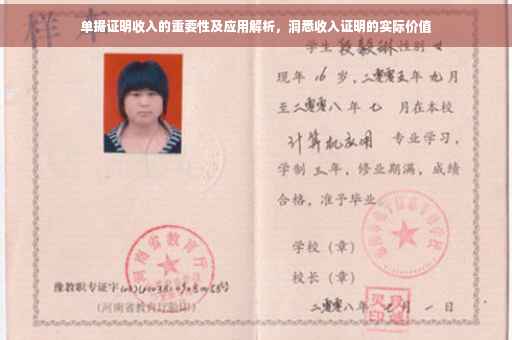 单撮证明收入的重要性及应用解析，洞悉收入证明的实际价值
样本
学生段毅琳性别女
现年16岁，二零零五年九月
至二零零八年七月在本校
计算机应用 专业学习，
学制三年，修业期满，成绩
合格，准予毕业
学校（章）
校长（章）
二零零八年七月一日
河南省教育厅
豫教职专证字
（河南省教育厅验印）